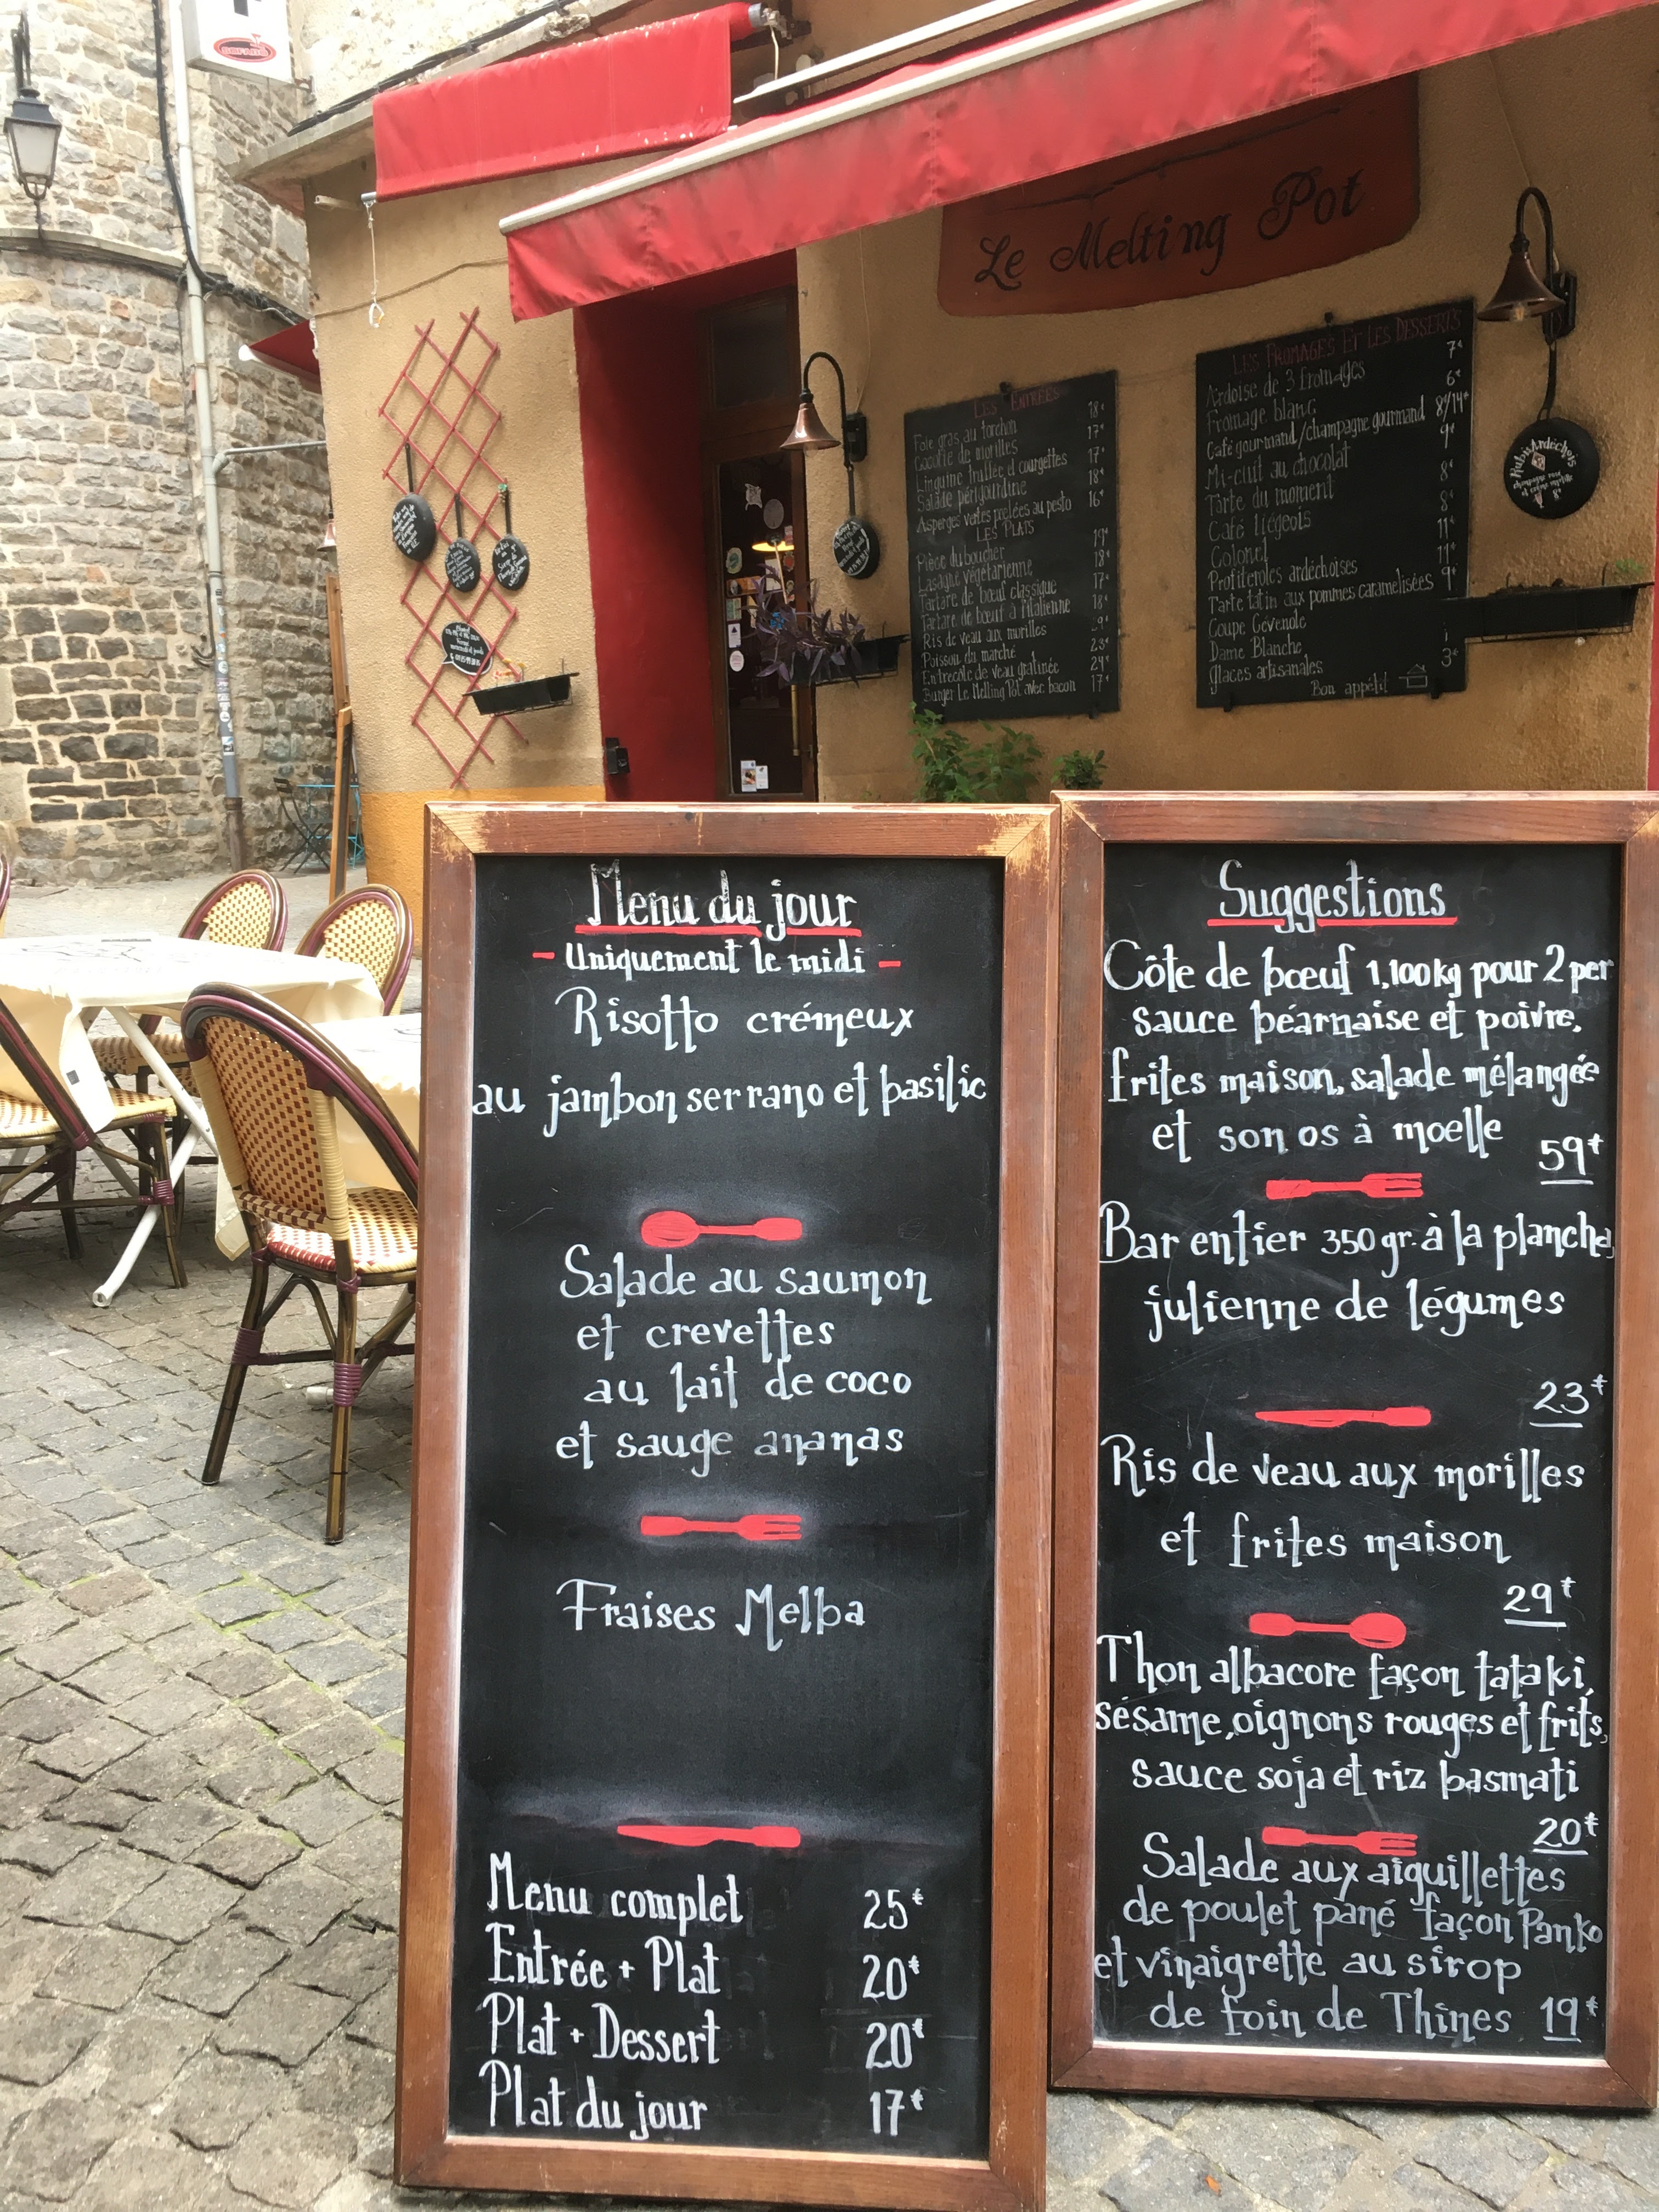 Le Melting Pot
LES ENTRÉES
Foie gras au torchon 18€
Cocotte de morilles 17€
Linguine truffée et courgettes 17€
Salade périgourdine 18€
Asperges vertes poêlées au pesto 16€
LES PLATS
Pièce du boucher 19€
Lasagne végétarienne 18€
Tartare de bœuf classique 17€
Tartare de bœuf à l'italienne 18€
Ris de veau aux morilles
Poisson du marché 23€
Entrecôte de veau gratinée 24€
Burger Le Melting Pot avec bacon 17€
LES FROMAGES ET LES DESSERTS
Ardoise de 3 fromages 7€
Fromage blanc 6€
Café gourmand/champagne gourmand 8€/14€
Mi-cuit au chocolat 9€
Tarte du moment 8€
Café liégeois 8€
Colonel 11€
Profiteroles ardéchoises 11€
Tarte tatin aux pommes caramelisées 9€
Coupe Cévenole
Dame Blanche
Glaces artisanales 3€
Bon appétit
Rubis Ardéchois
Menu du jour
- Uniquement le midi -
Risotto crémeux
au jambon serrano et basilic
Salade au saumon
et crevettes
au lait de coco
et sauge ananas
Fraises Melba
Menu complet 25€
Entrée + Plat 20€
Plat + Dessert 20€
Plat du jour 17€
Suggestions
Côte de bœuf 1,100kg pour 2 per
sauce béarnaise et poivre,
frites maison, salade mélangée
et son os à moelle 59€
Bar entier 350gr. à la plancha,
julienne de légumes
23€
Ris de veau aux morilles
et frites maison
29€
Thon albacore façon tataki,
sésame, oignons rouges et frits,
sauce soja et riz basmati
20€
Salade aux aiguillettes
de poulet pané façon Panko
et vinaigrette au sirop
de foin de Thines 19€